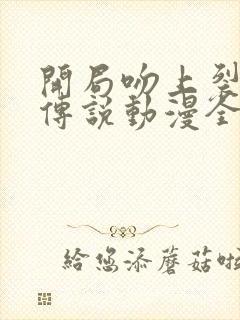 開局吻上裂
傳說動漫全
給您添蘑菇啦